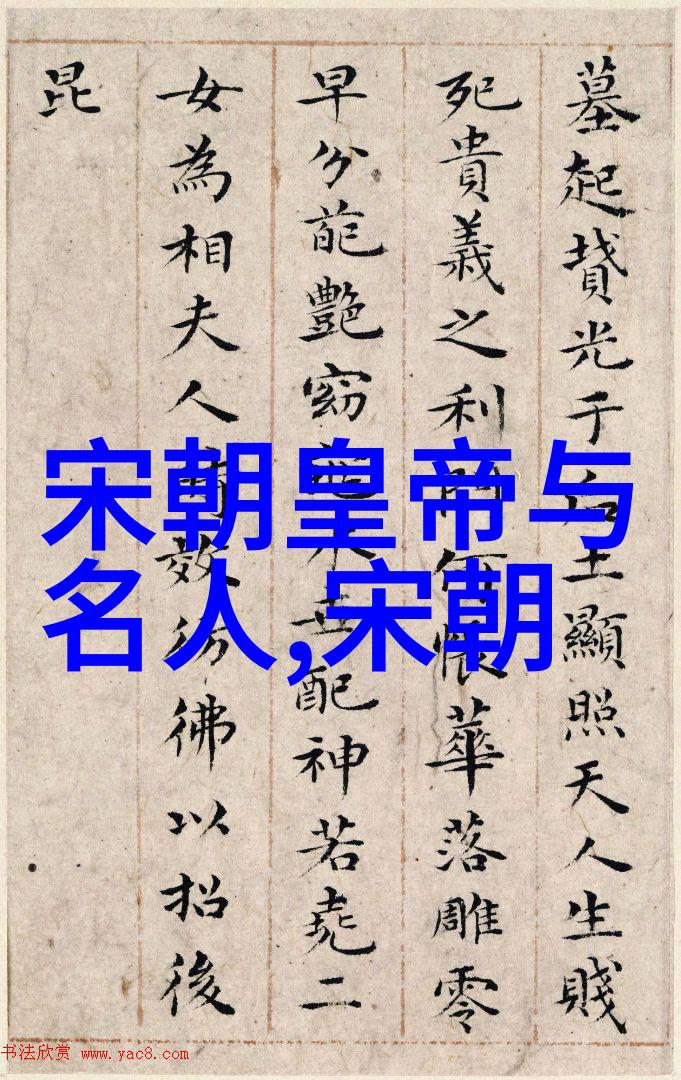 墓起墳光于后土顯照天人生賤
死貴義之利門何悵華落雕零
早分葩艷窈窕永世配神若堯二
女為相夫人時效彷彿以招後
昆
宋朝皇帝与
名人,宋朝
书法欣赏 www.yac8.com